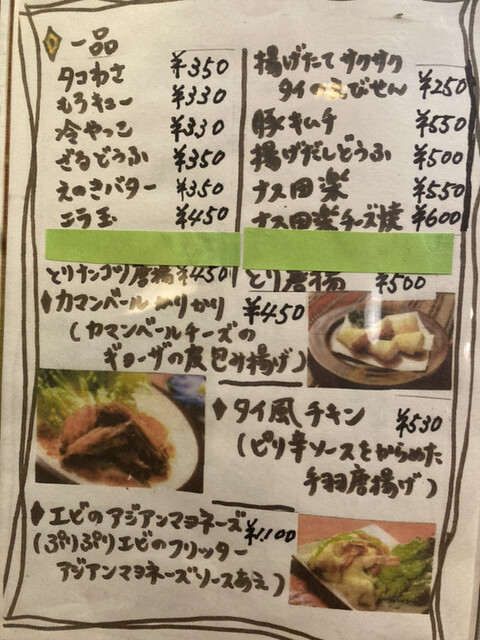 一品
タコわさ ¥350
もろキュー ¥330
冷やっこ ¥330
ざるどうふ ¥350
えのきバター ¥350
ニラ玉 ¥450
とりナンコツ唐揚 ¥450
揚げたてサクサク
タイのえびせん ¥250
豚キムチ ¥550
揚げだしどうふ ¥500
ナス田楽 ¥550
ナス田楽チーズ焼 ¥600
とり唐揚 ¥500
カマンベールかりかり ¥450
(カマンベールチーズの
ギョーザの皮包み揚げ)
タイ風チキン ¥530
(ピリ辛ソースをからめた
手羽唐揚げ)
エビのアジアンマヨネーズ ¥1,100
(ぷりぷりエビのフリッター
アジアンマヨネーズソースあえ)